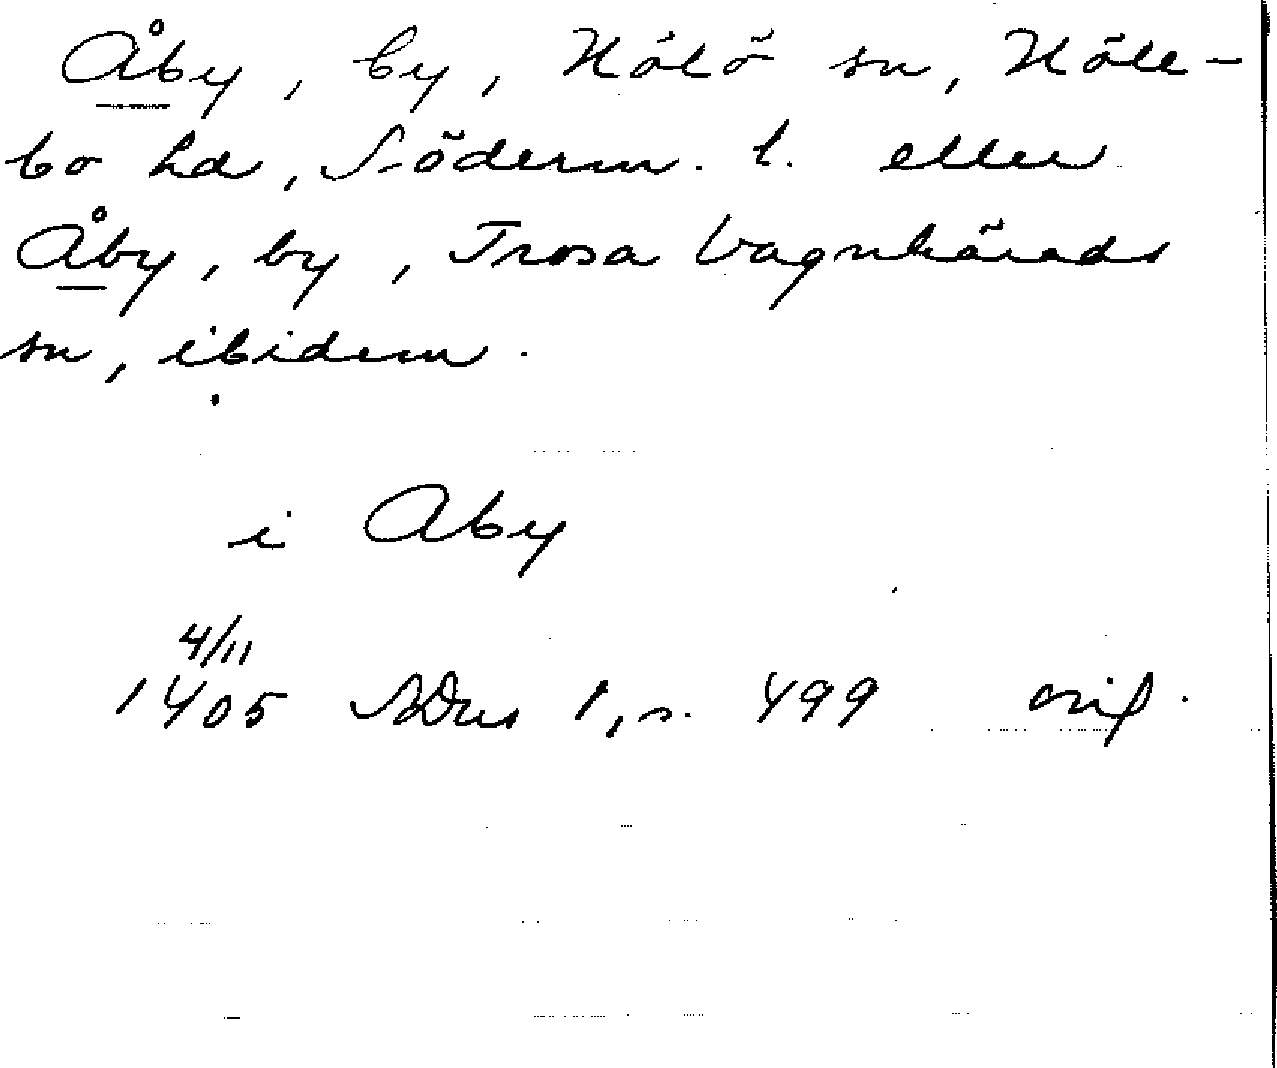 Åby, by, Hölö sn, Höle-
bo hd, Söderm. l. eller
Åby, by, Trosa Vagnhärads
sn, ibidem.
i Aby
4/11
1405 SDns 1, s. 499 orig.